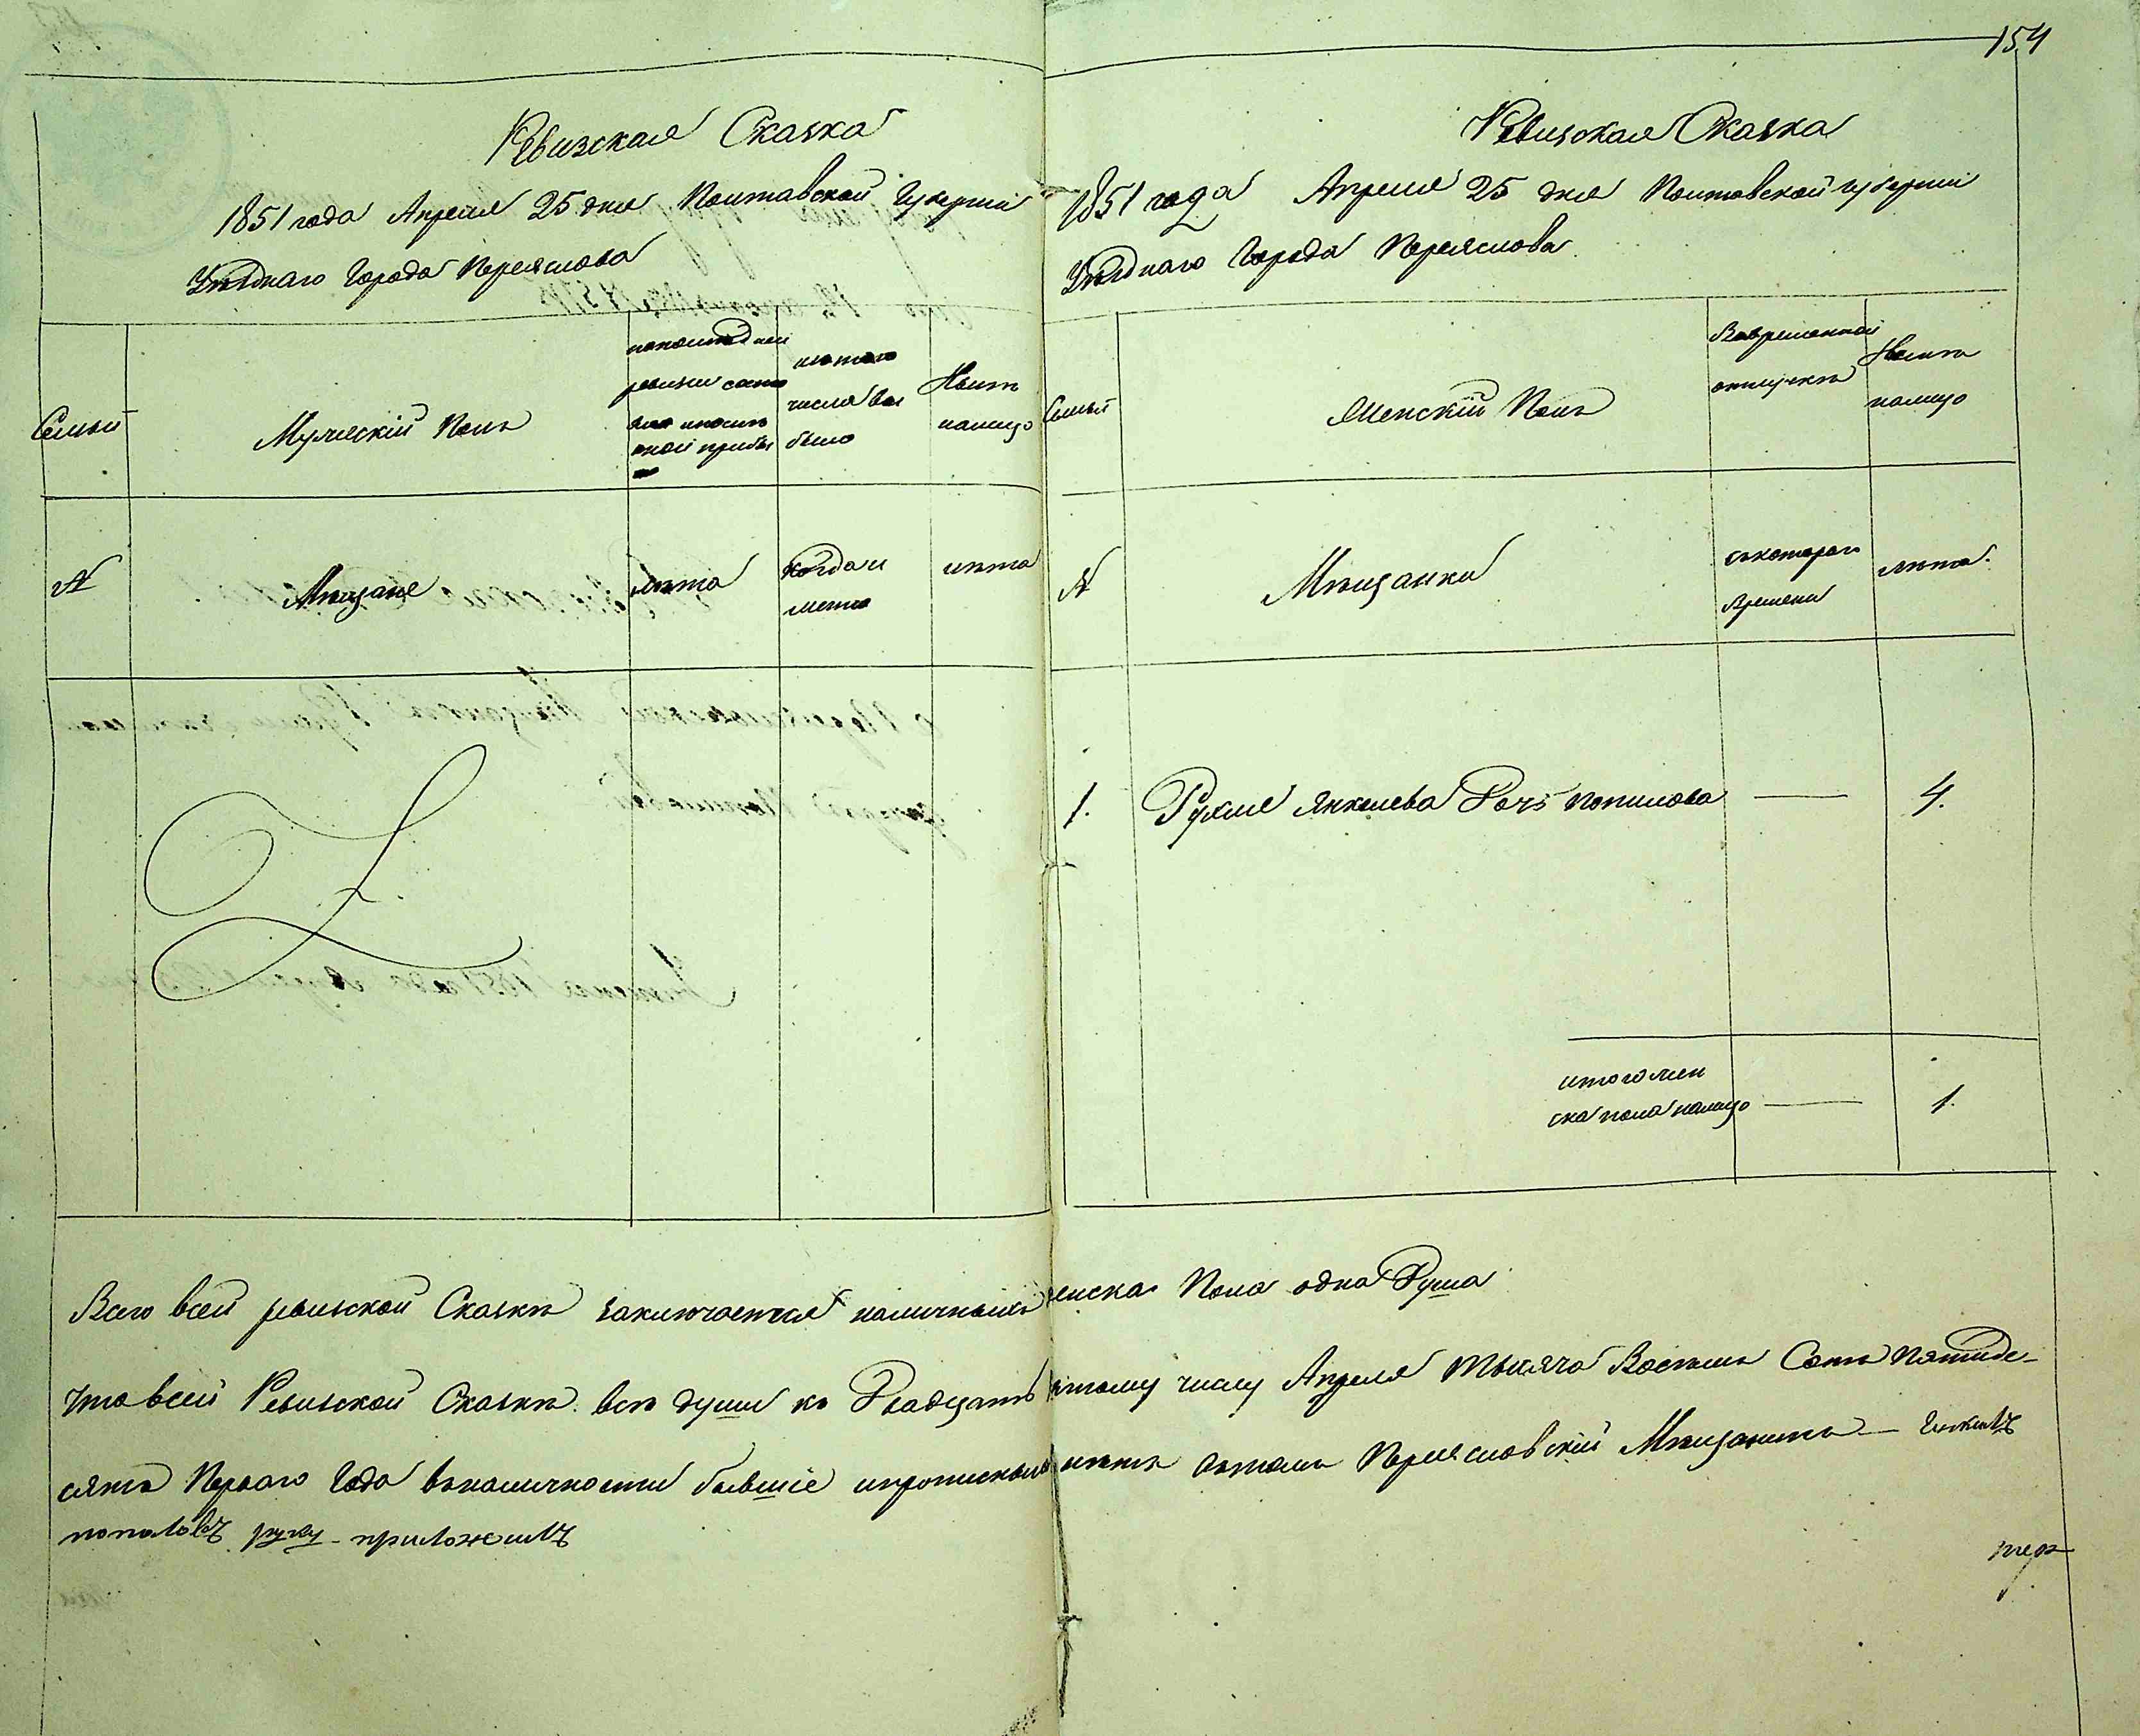 154
Ревизская Сказка
1851 года Апреля 25 дня Полтавской Губерніи
Уѣзднаго Города Переяслова
Семьи
Мужескій Полъ
попослѣдней
ревизіи состо
было
изътого
числа вы
было
Нынѣ
налицо
№
Мѣщане
лѣта
Когда и
лѣта
Ревизская Сказка
1851 года Апреля 25 дня Полтавской губерніи
Уѣзднаго Города Переяслова
Семьи
Женскій Полъ
Вовременной
отлучкѣ
Нынѣ
налицо
№
Мѣщанки
съкотораго
времени
лѣта.
1. Рухля Янкелева Дочь Попилова — 4.
итого жен
ска пола налицо — 1.
Всего всей ревизской Сказкѣ заключается наличныхъ женска Пола одна Душа
Что всей Ревизской Сказкѣ всѣ души къ Двадцать пятому числу Апреля Тысяча Восемь Сотъ Пятиде-
сятъ Перваго Года въналичности бывшіе ипрописныхъ нѣтъ вътомъ Переясловскій Мѣщанинъ —
руку-приложилъ